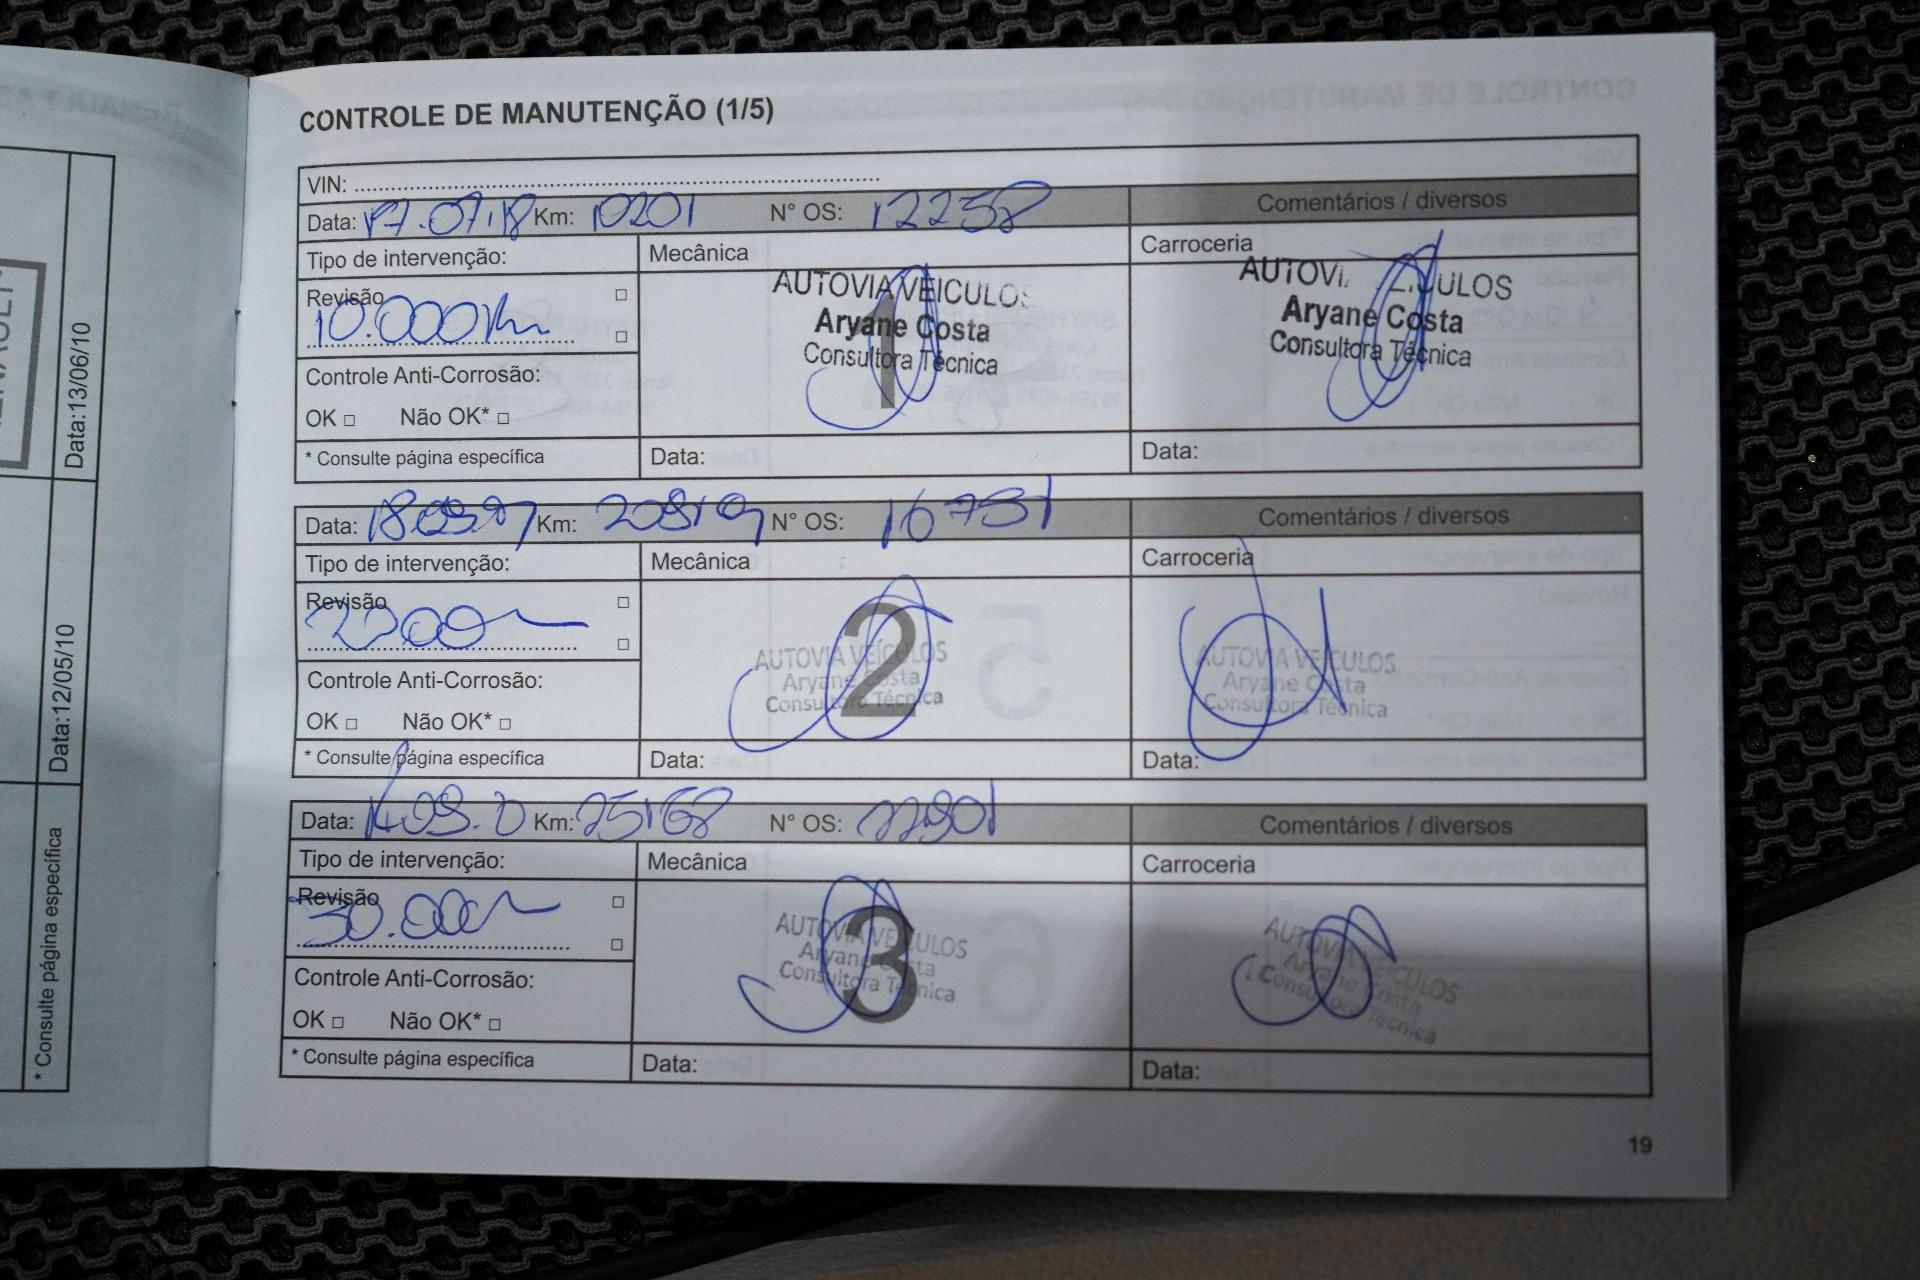 CONTROLE DE MANUTENÇÃO (1/5)
VIN:
Data: 17.07.18 Km: 10201 N° OS: 12258 Comentários / diversos
Tipo de intervenção: Mecânica Carroceria
Revisão
10.000Km
AUTOVIA VEICULOS
Aryane Costa
Consultora Técnica
1
AUTOVI ULOS
Aryane Costa
Consultora Técnica
Controle Anti-Corrosão:
OK Não OK*
* Consulte página específica Data: Data:
Data: Km: 20819 N° OS: 16751 Comentários / diversos
Tipo de intervenção: Mecânica Carroceria
Revisão
2
AUTOVIA VEÍCULOS
Aryane Costa
Consultora Técnica
AUTOVIA VEICULOS
Aryane Costa
Consultora Técnica
Controle Anti-Corrosão:
OK Não OK*
* Consulte página específica Data: Data:
Data: Km: 25168 N° OS: Comentários / diversos
Tipo de intervenção: Mecânica Carroceria
Revisão
30.000
3
AUTOVIA VEICULOS
Aryane Costa
Consultora Técnica
AUTOVIA VEICULOS
Aryane Costa
Consultora Técnica
Controle Anti-Corrosão:
OK Não OK*
* Consulte página específica Data: Data:
19
Data:13/06/10
Data:12/05/10
* Consulte página específica